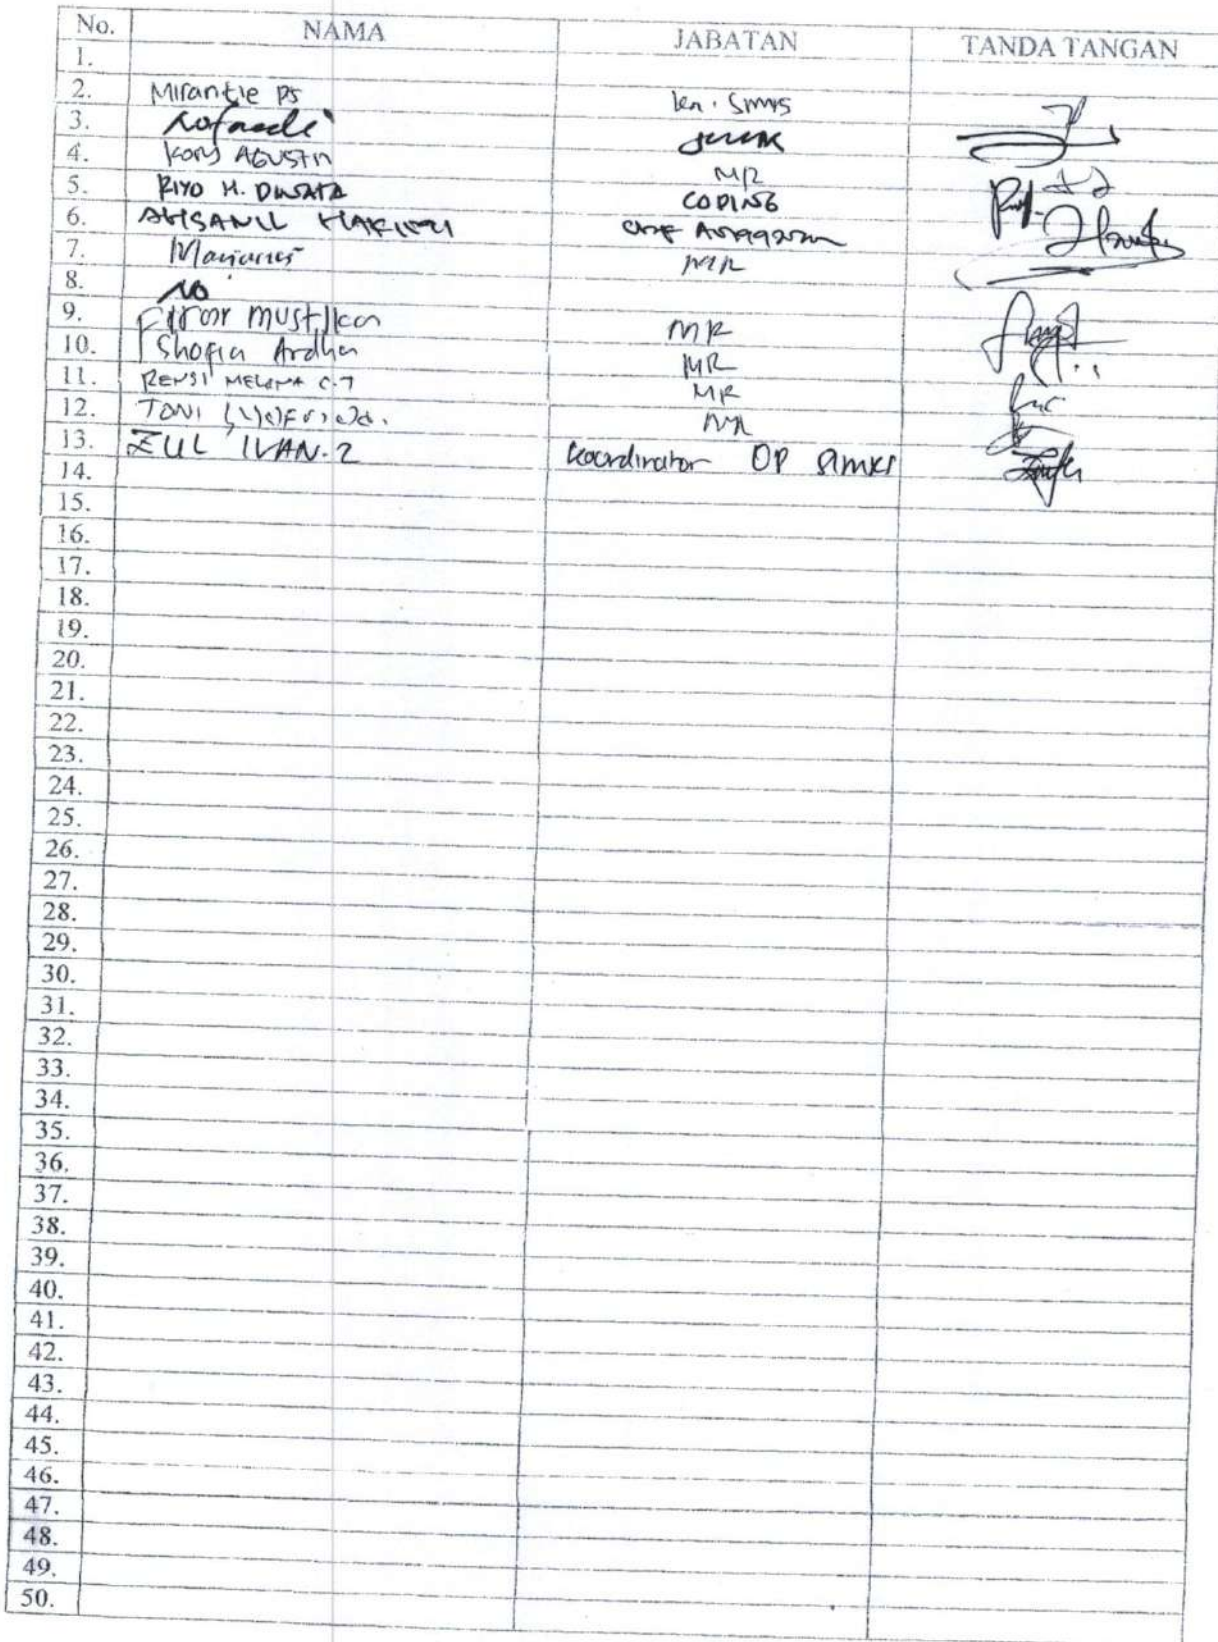 No. NAMA JABATAN TANDA TANGAN
1.
2. Mirantie PS Ka. SIMRS
3.
4. Kory AGUSTIN MR
5. RIYO H. DWNATA CODING
6. AHSANUL HAKIM
7. MR
8.
9. Mustika MR
10. Shofia Ardha MR
11. RENSI MELINA C.T MR
12. TONI MR
13. ZUL IVAN.Z Koordinator OP SIMRS
14.
15.
16.
17.
18.
19.
20.
21.
22.
23.
24.
25.
26.
27.
28.
29.
30.
31.
32.
33.
34.
35.
36.
37.
38.
39.
40.
41.
42.
43.
44.
45.
46.
47.
48.
49.
50.